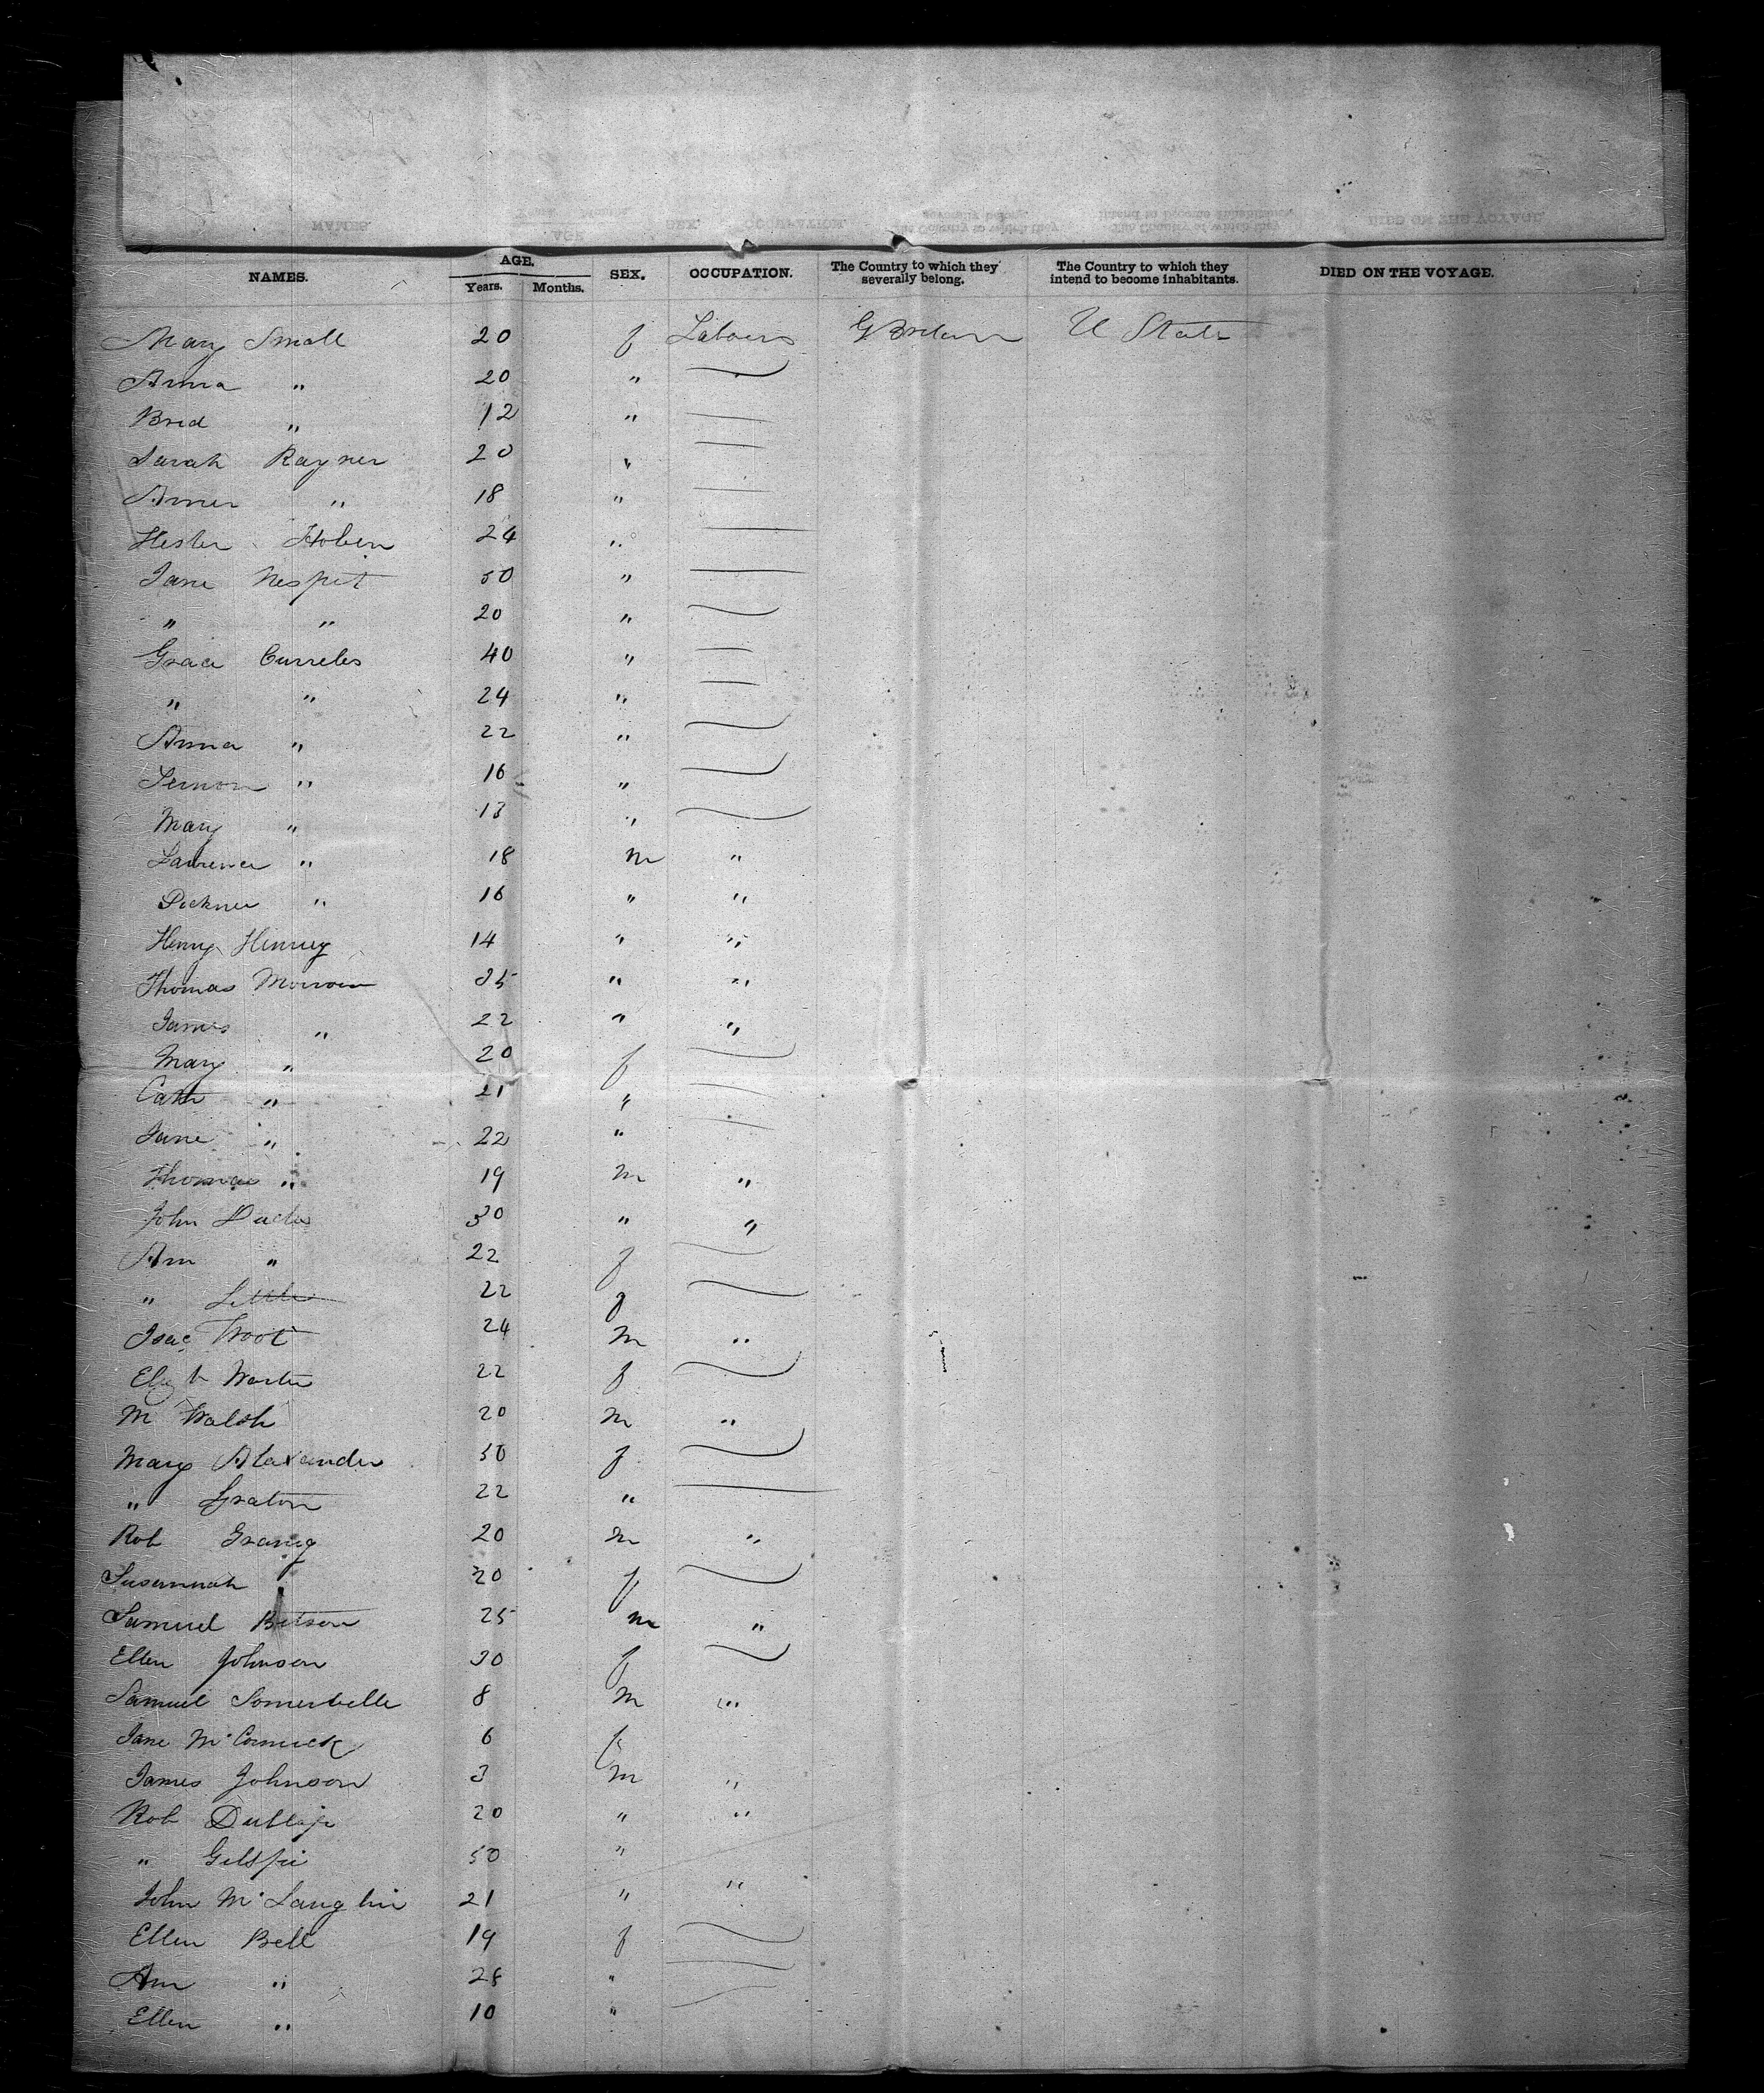 NAMES. AGE. SEX. OCCUPATION. The Country to which they severally belong. The Country to which they intend to become inhabitants. DIED ON THE VOYAGE.
Years. Months.
Mary Small 20 f Labours G Britain U State
Anna " 20 "
Brid " 12 "
Sarah Rayner 20 "
" 18 "
Hester Hoben 24 "
Jane Nespit 50 "
" " 20 "
Grace Curreles 40 "
" " 24 "
Anna " 22 "
" 16 "
Mary " 13 "
Laurence " 18 m "
" 16 " "
Henry Henry 14 " "
Thomas Morrow 35 " "
James " 22 " "
Mary " 20 f
Cath " 21 "
Jane " 22 "
Thomas " 19 m "
John 30 " "
Ann " 22 f
" Little 22 f
Isac 24 m "
22 f
M Walsh 20 m "
Mary Alaxander 50 f
" 22 "
Rob 20 m "
Susannah 20 f
Samuel 25 m "
Ellen Johnson 30 f
Samuel 8 m "
Jane McCormick 6 f
James Johnson 3 m "
Rob 20 " "
" Gilspie 50 "
John McLaughlin 21 " "
Ellen Bell 19 f
Ann " 28 "
Ellen " 10 "